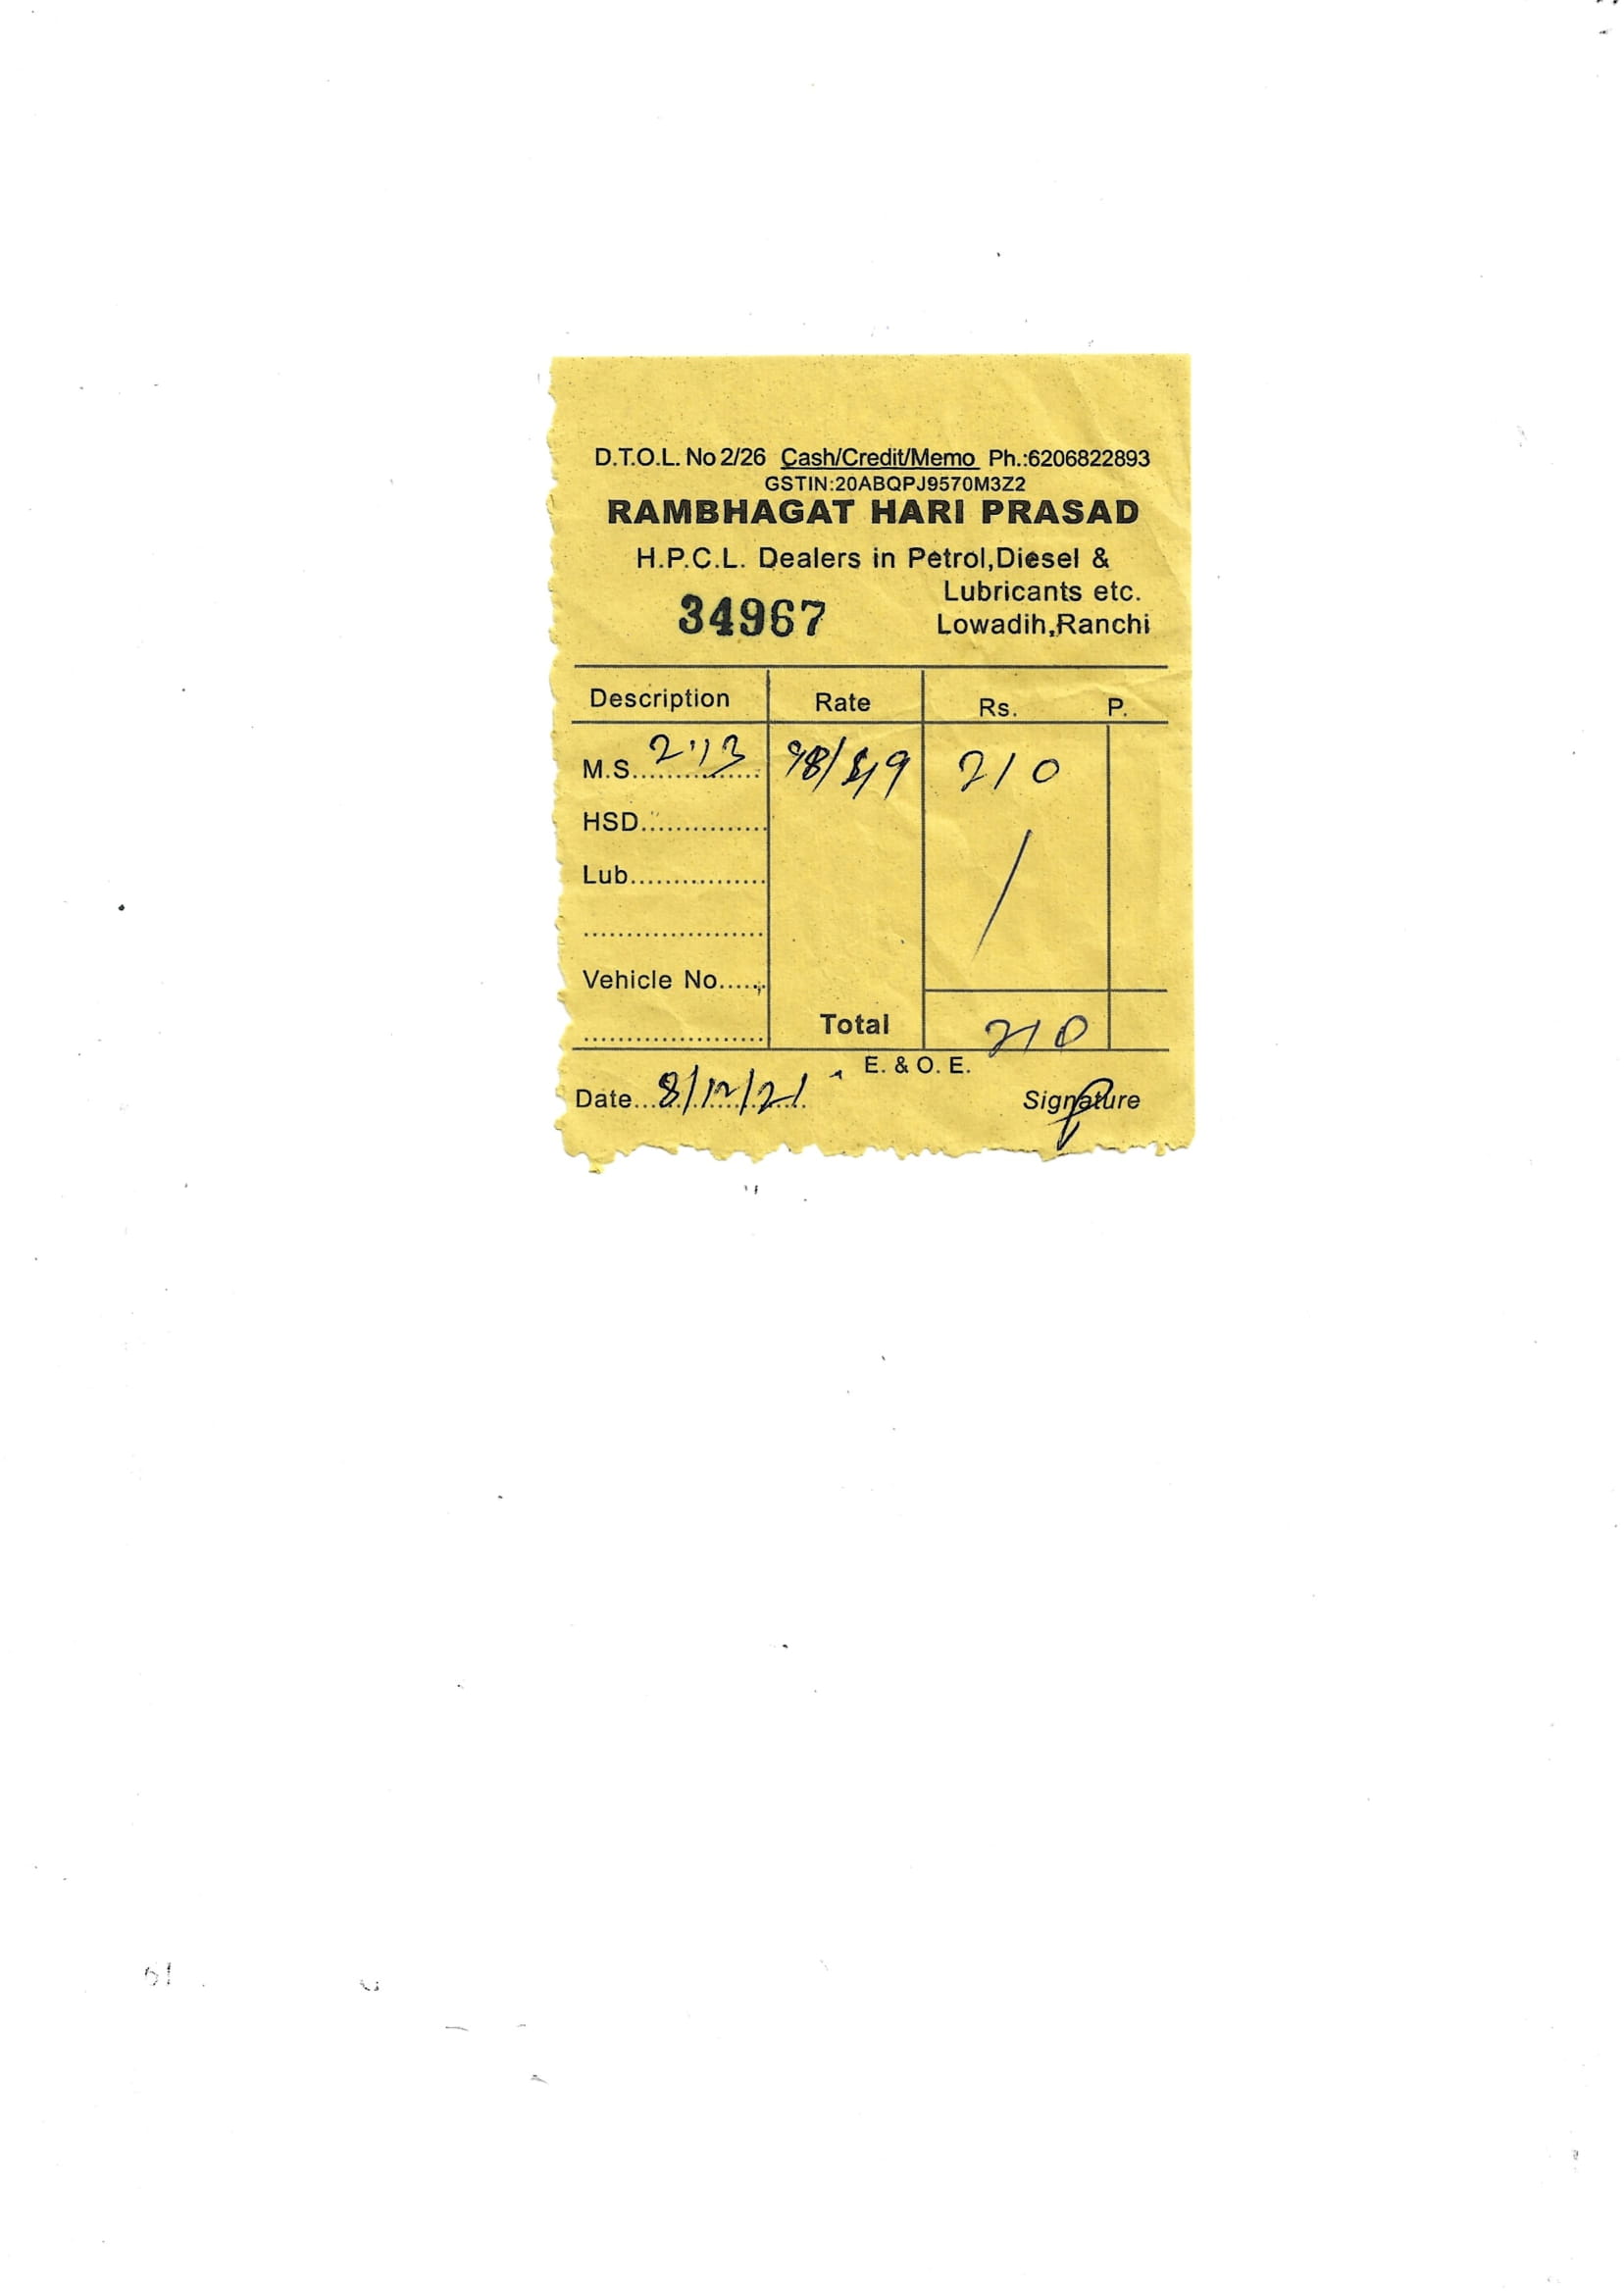 D.T.O.L. No 2/26 Cash/Credit/Memo Ph.:6206822893
GSTIN:20ABQPJ9570M3Z2
RAMBHAGAT HARI PRASAD
H.P.C.L. Dealers in Petrol,Diesel &
Lubricants etc.
34967 Lowadih,Ranchi
Description Rate Rs. P.
M.S. 2.13 210
HSD
Lub
Vehicle No.
Total 210
E. & O. E.
Date 8/12/21 Signature